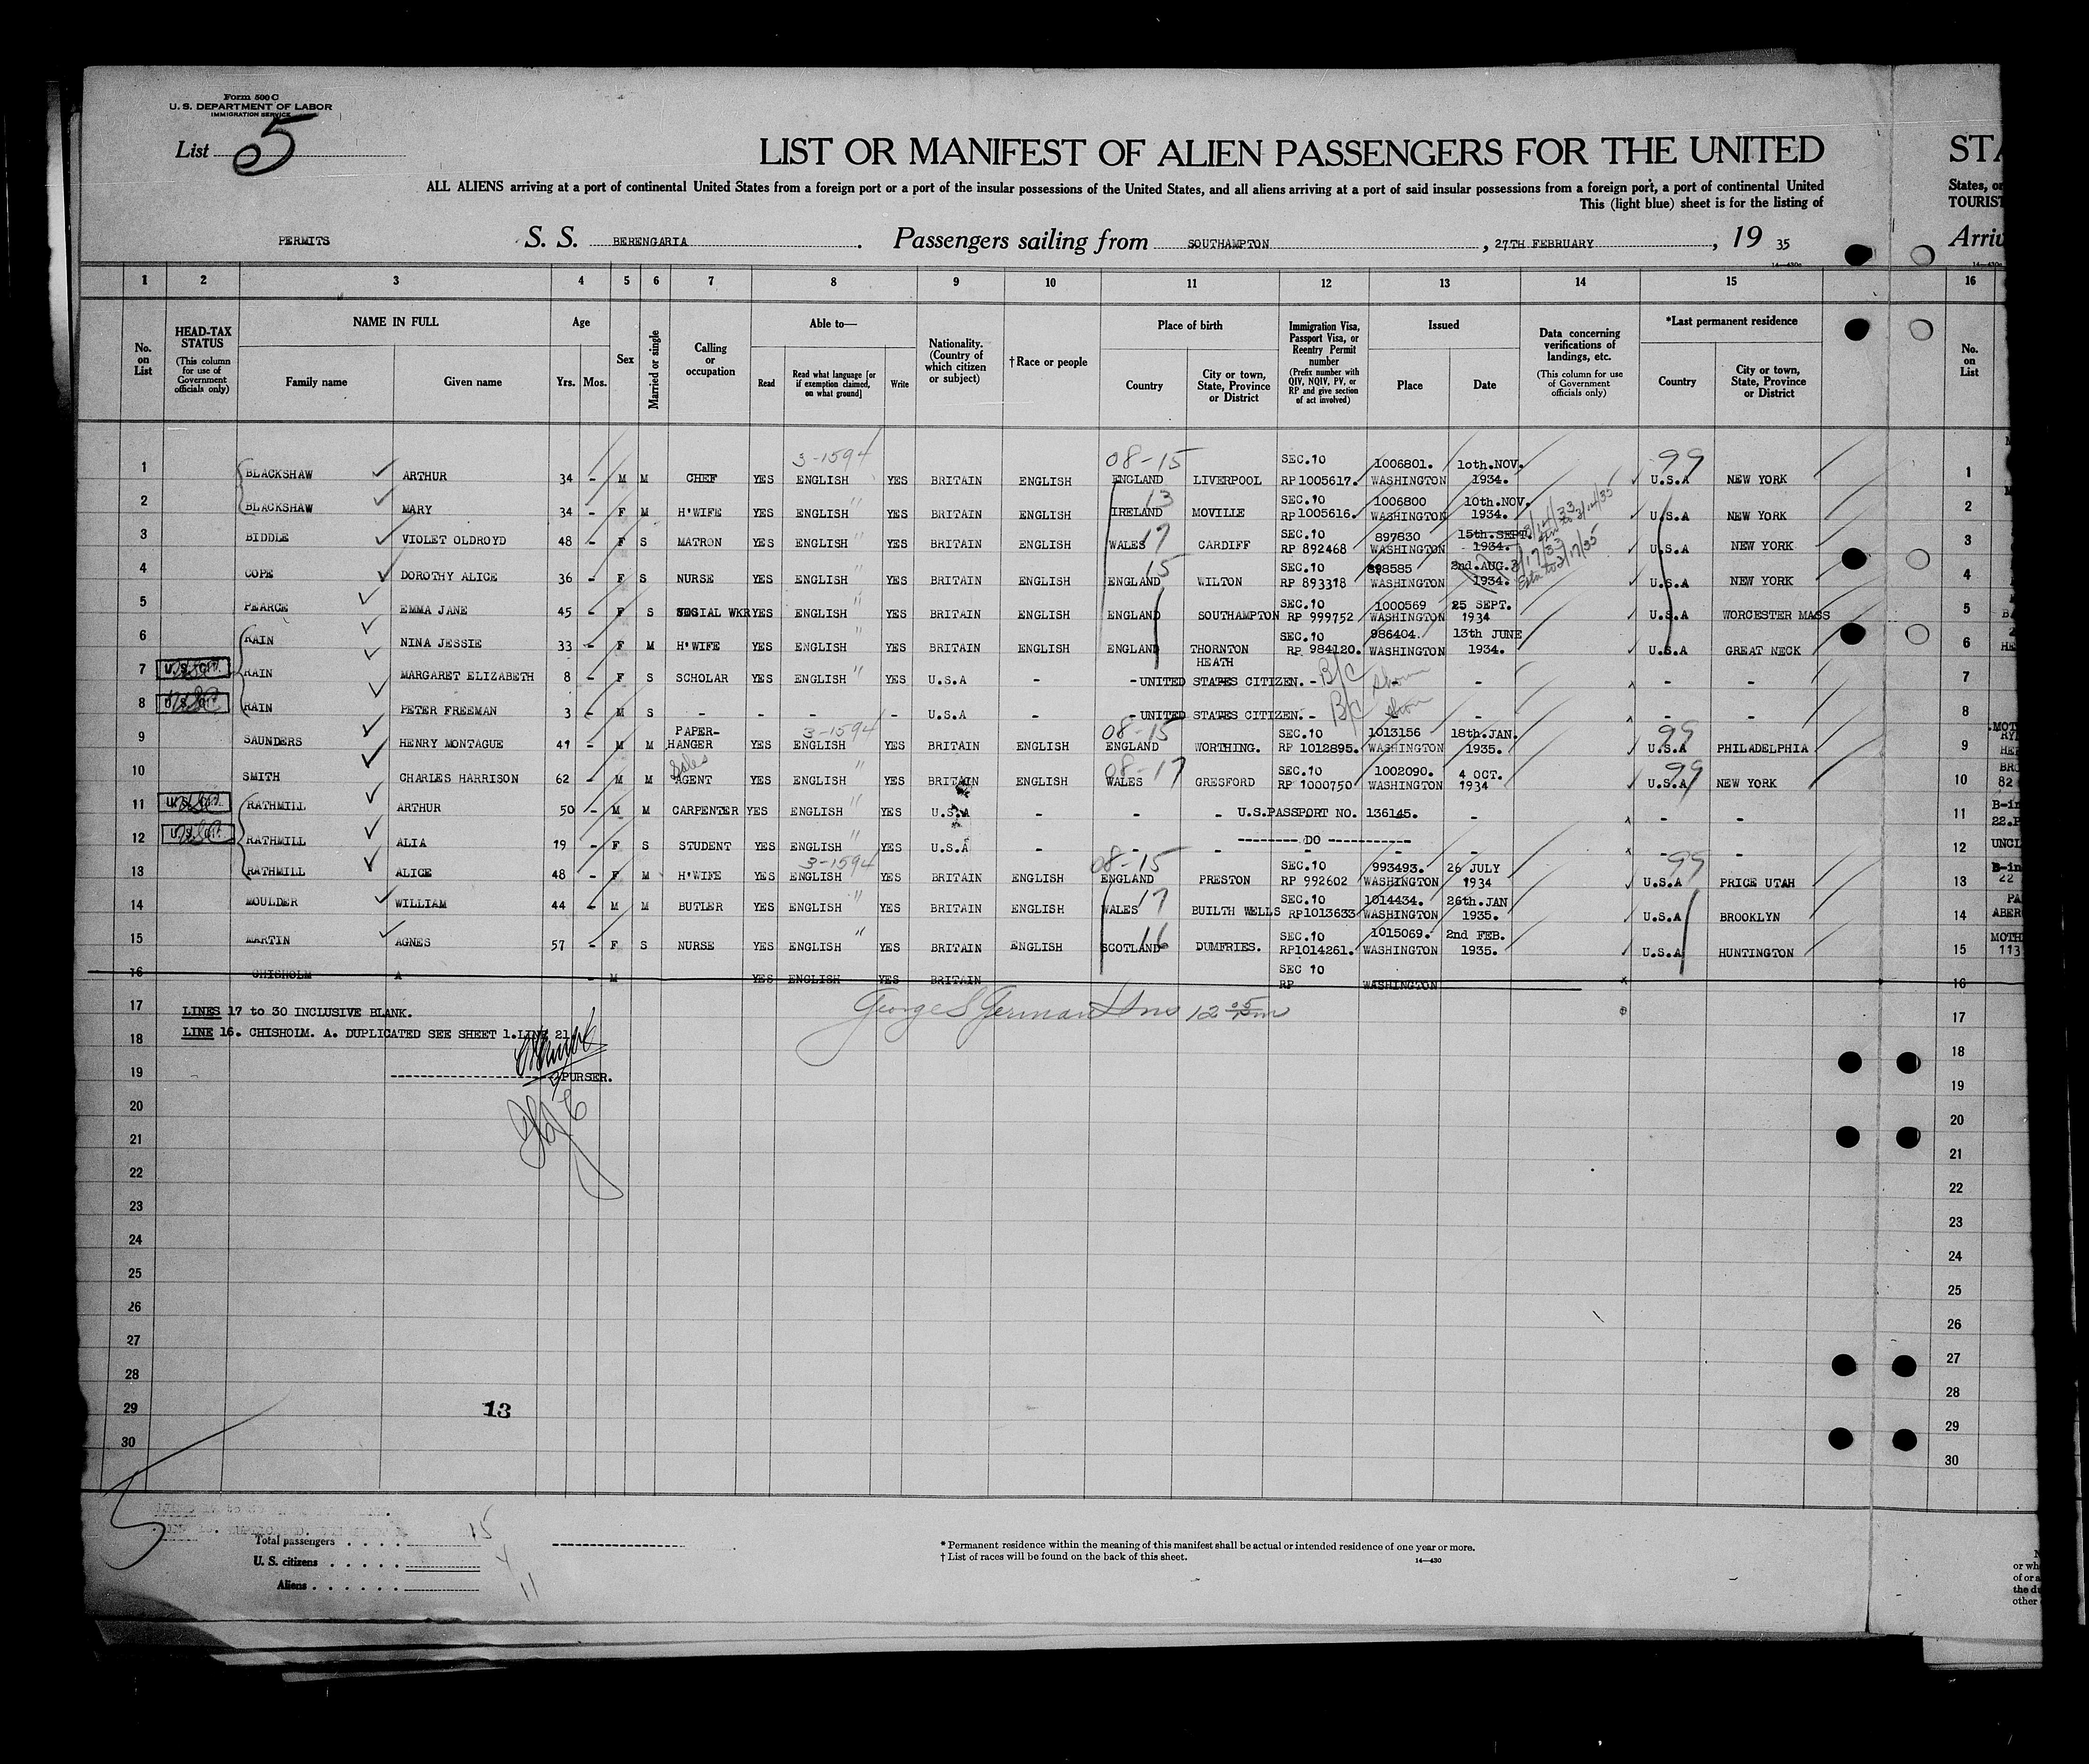 Form 500 C
U. S. DEPARTMENT OF LABOR
IMMIGRATION SERVICE
List 5
LIST OR MANIFEST OF ALIEN PASSENGERS FOR THE UNITED STA
ALL ALIENS arriving at a port of continental United States from a foreign port or a port of the insular possessions of the United States, and all aliens arriving at a port of said insular possessions from a foreign port, a port of continental United States, or
This (light blue) sheet is for the listing of TOURIST
PERMITS S. S. BERENGARIA. Passengers sailing from SOUTHAMPTON, 27TH FEBRUARY, 19 35 Arriv
14—430a 14—430a
1 2 3 4 5 6 7 8 9 10 11 12 13 14 15 16
No. on List
HEAD-TAX STATUS (This column for use of Government officials only)
NAME IN FULL Family name Given name
Age Yrs. Mos.
Sex
Married or single
Calling or occupation
Able to— Read Read what language [or if exemption claimed, on what ground] Write
Nationality. (Country of which citizen or subject)
†Race or people
Place of birth Country City or town, State, Province or District
Immigration Visa, Passport Visa, or Reentry Permit number (Prefix number with QIV, NQIV, PV, or RP and give section of act involved)
Issued Place Date
Data concerning verifications of landings, etc. (This column for use of Government officials only)
*Last permanent residence Country City or town, State, Province or District
No. on List
3-1594 08-15 99
1 BLACKSHAW ARTHUR 34 - M M CHEF YES ENGLISH YES BRITAIN ENGLISH ENGLAND LIVERPOOL SEC.10 RP 1005617. 1006801. WASHINGTON 10th.NOV. 1934. U.S.A NEW YORK 1
2 BLACKSHAW MARY 34 - F M H'WIFE YES ENGLISH " YES BRITAIN ENGLISH IRELAND 13 MOVILLE SEC.10 RP 1005616. 1006800 WASHINGTON 10th.NOV. 1934. U.S.A NEW YORK 2
3 BIDDLE VIOLET OLDROYD 48 - F S MATRON YES ENGLISH " YES BRITAIN ENGLISH WALES 17 CARDIFF SEC.10 RP 892468 897830 WASHINGTON 15th.SEPT. 1934. 3/14/33 to 3/14/35 U.S.A NEW YORK 3
4 COPE DOROTHY ALICE 36 - F S NURSE YES ENGLISH " YES BRITAIN ENGLISH ENGLAND 15 WILTON SEC.10 RP 893318 898585 WASHINGTON 2nd.AUG. 1934. 3/17/33 Extn to 3/17/35 U.S.A NEW YORK 4
5 PEARCE EMMA JANE 45 - F S SOCIAL WKR YES ENGLISH " YES BRITAIN ENGLISH ENGLAND SOUTHAMPTON SEC.10 RP 999752 1000569 WASHINGTON 25 SEPT. 1934 U.S.A WORCESTER MASS 5
6 RAIN NINA JESSIE 33 - F M H'WIFE YES ENGLISH YES BRITAIN ENGLISH ENGLAND THORNTON HEATH SEC.10 RP 984120. 986404. WASHINGTON 13th JUNE 1934. U.S.A GREAT NECK 6
7 U.S. CIT. RAIN MARGARET ELIZABETH 8 - F S SCHOLAR YES ENGLISH " YES U.S.A - - UNITED STATES CITIZEN. - B/C Shown - - - 7
8 U.S. CIT. RAIN PETER FREEMAN 3 - M S - - - - U.S.A - - UNITED STATES CITIZEN. - B/C Shown - - - 8
9 SAUNDERS HENRY MONTAGUE 41 - M M PAPER-HANGER YES 3-1594 ENGLISH YES BRITAIN ENGLISH 08-15 ENGLAND WORTHING. SEC.10 RP 1012895. 1013156 WASHINGTON 18th.JAN. 1935. 99 U.S.A PHILADELPHIA 9
10 SMITH CHARLES HARRISON 62 - M M Sales AGENT YES ENGLISH " YES BRITAIN ENGLISH 08-17 WALES GRESFORD SEC.10 RP 1000750 1002090. WASHINGTON 4 OCT. 1934 99 U.S.A NEW YORK 10
11 U.S. CIT. RATHMILL ARTHUR 50 - M M CARPENTER YES ENGLISH " YES U.S.A - - - U.S.PASSPORT NO. 136145. - - - 11
12 U.S. CIT. RATHMILL ALIA 19 - F S STUDENT YES ENGLISH " YES U.S.A - - - -------- DO ----------- - - 12
13 RATHMILL ALICE 48 - F M H'WIFE YES 3-1594 ENGLISH YES BRITAIN ENGLISH 08-15 ENGLAND PRESTON SEC.10 RP 992602 993493. WASHINGTON 26 JULY 1934 99 U.S.A PRICE UTAH 13
14 MOULDER WILLIAM 44 - M M BUTLER YES ENGLISH " YES BRITAIN ENGLISH WALES 17 BUILTH WELLS SEC.10 RP1013633 1014434. WASHINGTON 26th.JAN 1935. U.S.A BROOKLYN 14
15 MARTIN AGNES 57 - F S NURSE YES ENGLISH " YES BRITAIN ENGLISH SCOTLAND 16 DUMFRIES. SEC.10 RP1014261. 1015069. WASHINGTON 2nd FEB. 1935. U.S.A HUNTINGTON 15
16 CHISHOLM A - M YES ENGLISH YES BRITAIN SEC 10 RP WASHINGTON 16
17 LINES 17 to 30 INCLUSIVE BLANK. George S German 17
LINE 16. CHISHOLM. A. DUPLICATED SEE SHEET 1.LINE 21
18 18
19 PURSER. 19
20 20
21 21
22 22
23 23
24 24
25 25
26 26
27 27
28 28
29 13 29
30 30
Total passengers . . . . 15
U. S. citizens . . . . . 4
Aliens . . . . . . 11
* Permanent residence within the meaning of this manifest shall be actual or intended residence of one year or more.
† List of races will be found on the back of this sheet.
14—430